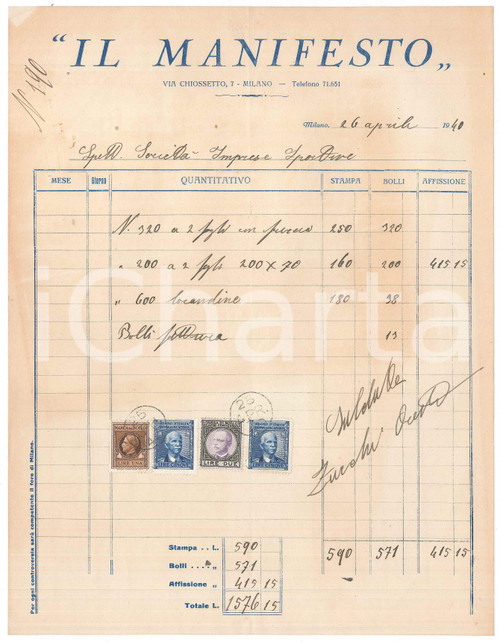 N. 190
“IL MANIFESTO„
VIA CHIOSSETTO, 7 - MILANO — Telefono 71.651
Milano, 26 aprile 1940
Spett. Società Imprese Sportive
MESE Giorno QUANTITATIVO STAMPA BOLLI AFFISSIONE
N. 320 a 2 fogli con 250 320
" 200 a 2 fogli 200 x 70 160 200 415 15
" 600 locandine 180 38
Bolli fattura 13
iCharta
Saldato
Zucchi
LIRE UNA
LIRE DUE
Stampa .. L. 590 590 571 415 15
Bolli ... „ 571
Affissione „ 415 15
Totale L. 1576 15
Per ogni controversia sarà competente il foro di Milano.